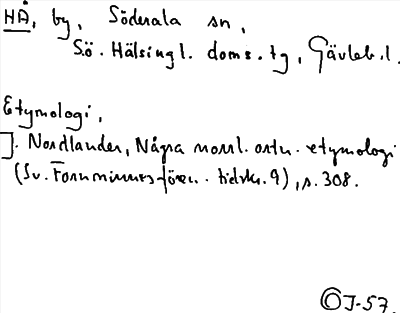 HÅ, by, Söderala sn,
Sö. Hälsingl. doms. tg, Gävleb. l.
Etymologi,
J. Nordlander, Några norrl. ortn. etymologi
(Sv. Fornminnesfören. tidskr. 9), s. 308.
© J-57.